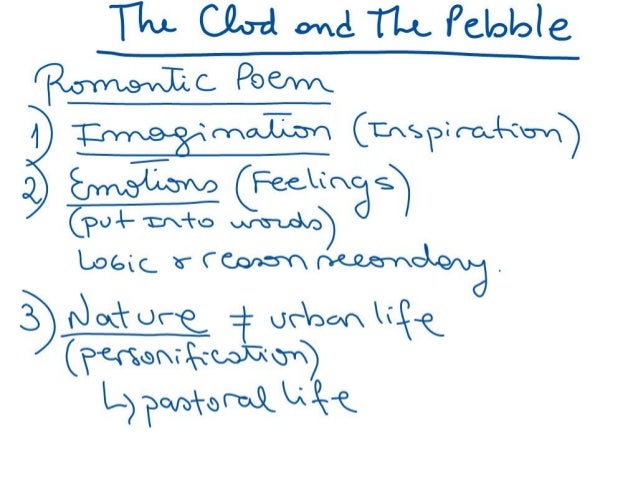 The Clod and The Pebble
Romantic Poem
1) Imagination (Inspiration)
2) Emotions (Feelings)
(put into words)
Logic & reason secondary.
3) Nature ≠ urban life
(personification)
↳ pastoral life